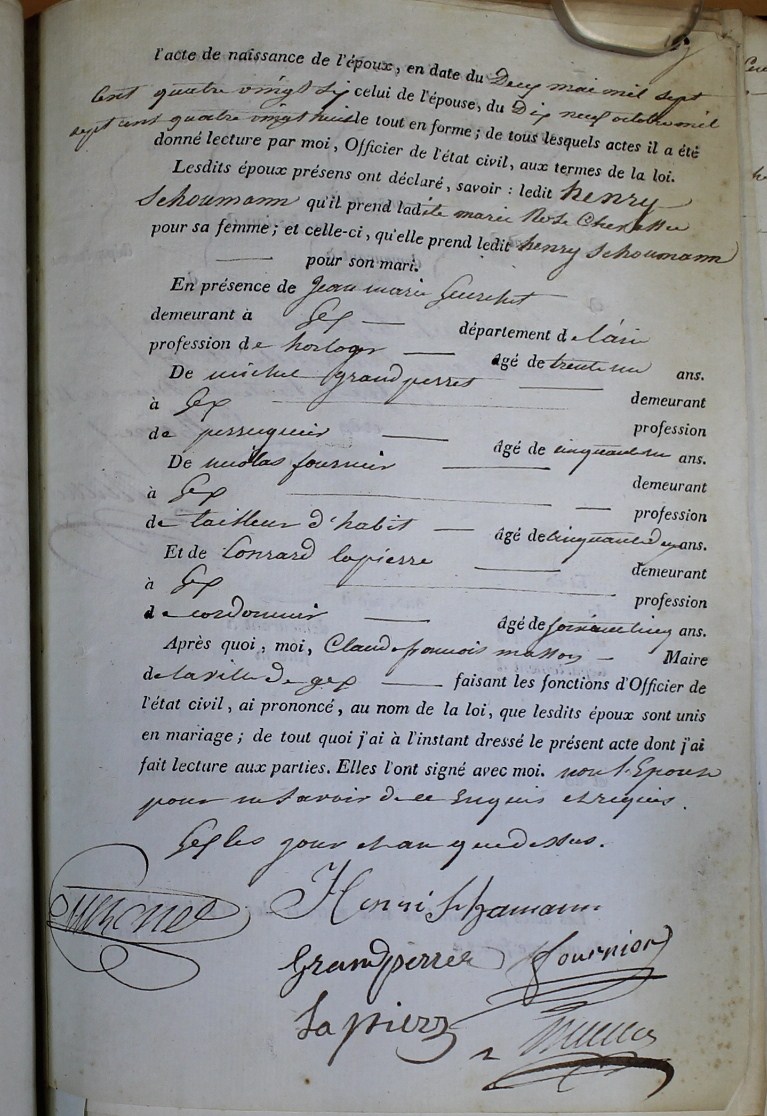 l'acte de naissance de l'époux, en date du Deux mai mil sept
cent quatre vingt six celui de l'épouse, du Dix neuf octobre mil
sept cent quatre vingt huit le tout en forme; de tous lesquels actes il a été
donné lecture par moi, Officier de l'état civil, aux termes de la loi.
Lesdits époux présens ont déclaré, savoir : ledit henry
Schoumann qu'il prend ladite marie Rose
pour sa femme; et celle-ci, qu'elle prend ledit henry Schoumann
pour son mari.
En présence de Jean marie
demeurant à Gex département de l'ain
profession de horloger âgé de trente un ans.
De michel grandperret demeurant
à Gex profession
de perruquier âgé de cinquante un ans.
De nicolas fournier demeurant
à Gex profession
de tailleur d'habit âgé de cinquante deux ans.
Et de Conrard lapierre demeurant
à Gex profession
de cordonnier âgé de ans.
Après quoi, moi, Claude françois masson Maire
de la ville de gex faisant les fonctions d'Officier de
l'état civil, ai prononcé, au nom de la loi, que lesdits époux sont unis
en mariage; de tout quoi j'ai à l'instant dressé le présent acte dont j'ai
fait lecture aux parties. Elles l'ont signé avec moi. non l'Epouse
pour ne Savoir de ce Enquis et requis.
Gex les jour et an que dessus.
Henri
Grandperret fournier
Lapierr